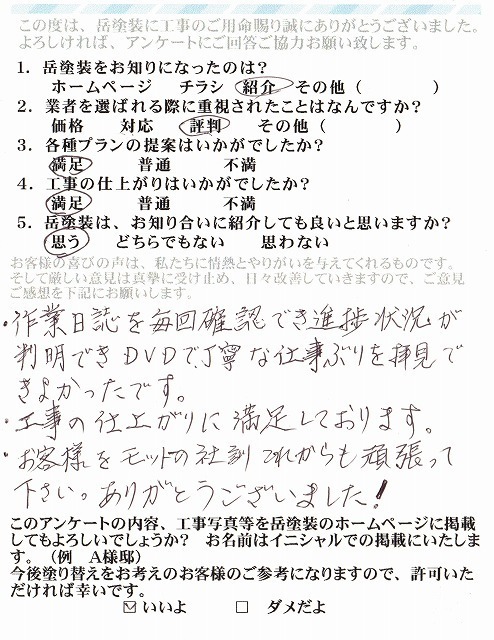 この度は、岳塗装に工事のご用命賜り誠にありがとうございました。
よろしければ、アンケートにご回答ご協力お願い致します。
1．岳塗装をお知りになったのは？
ホームページ　チラシ　紹介　その他（　　　　　）
2．業者を選ばれる際に重視されたことはなんですか？
価格　対応　評判　その他（　　　　　）
3．各種プランの提案はいかがでしたか？
満足　普通　不満
4．工事の仕上がりはいかがでしたか？
満足　普通　不満
5．岳塗装は、お知り合いに紹介しても良いと思いますか？
思う　どちらでもない　思わない
お客様の喜びの声は、私たちに情熱とやりがいを与えてくれるものです。
そして厳しい意見は真摯に受け止め、日々改善していきますので、ご意見
ご感想を下記にお願いします。
・作業日誌を毎回確認でき進捗状況が
判明できDVDで丁寧な仕事ぶりを拝見で
きよかったです。
・工事の仕上がりに満足しております。
・お客様をモットの社訓これからも頑張って
下さい。ありがとうございました！
このアンケートの内容、工事写真等を岳塗装のホームページに掲載
してもよろしいでしょうか？　お名前はイニシャルでの掲載にいたしま
す。（例　A様邸）
今後塗り替えをお考えのお客様のご参考になりますので、許可いた
だければ幸いです。
☑ いいよ　□ ダメだよ